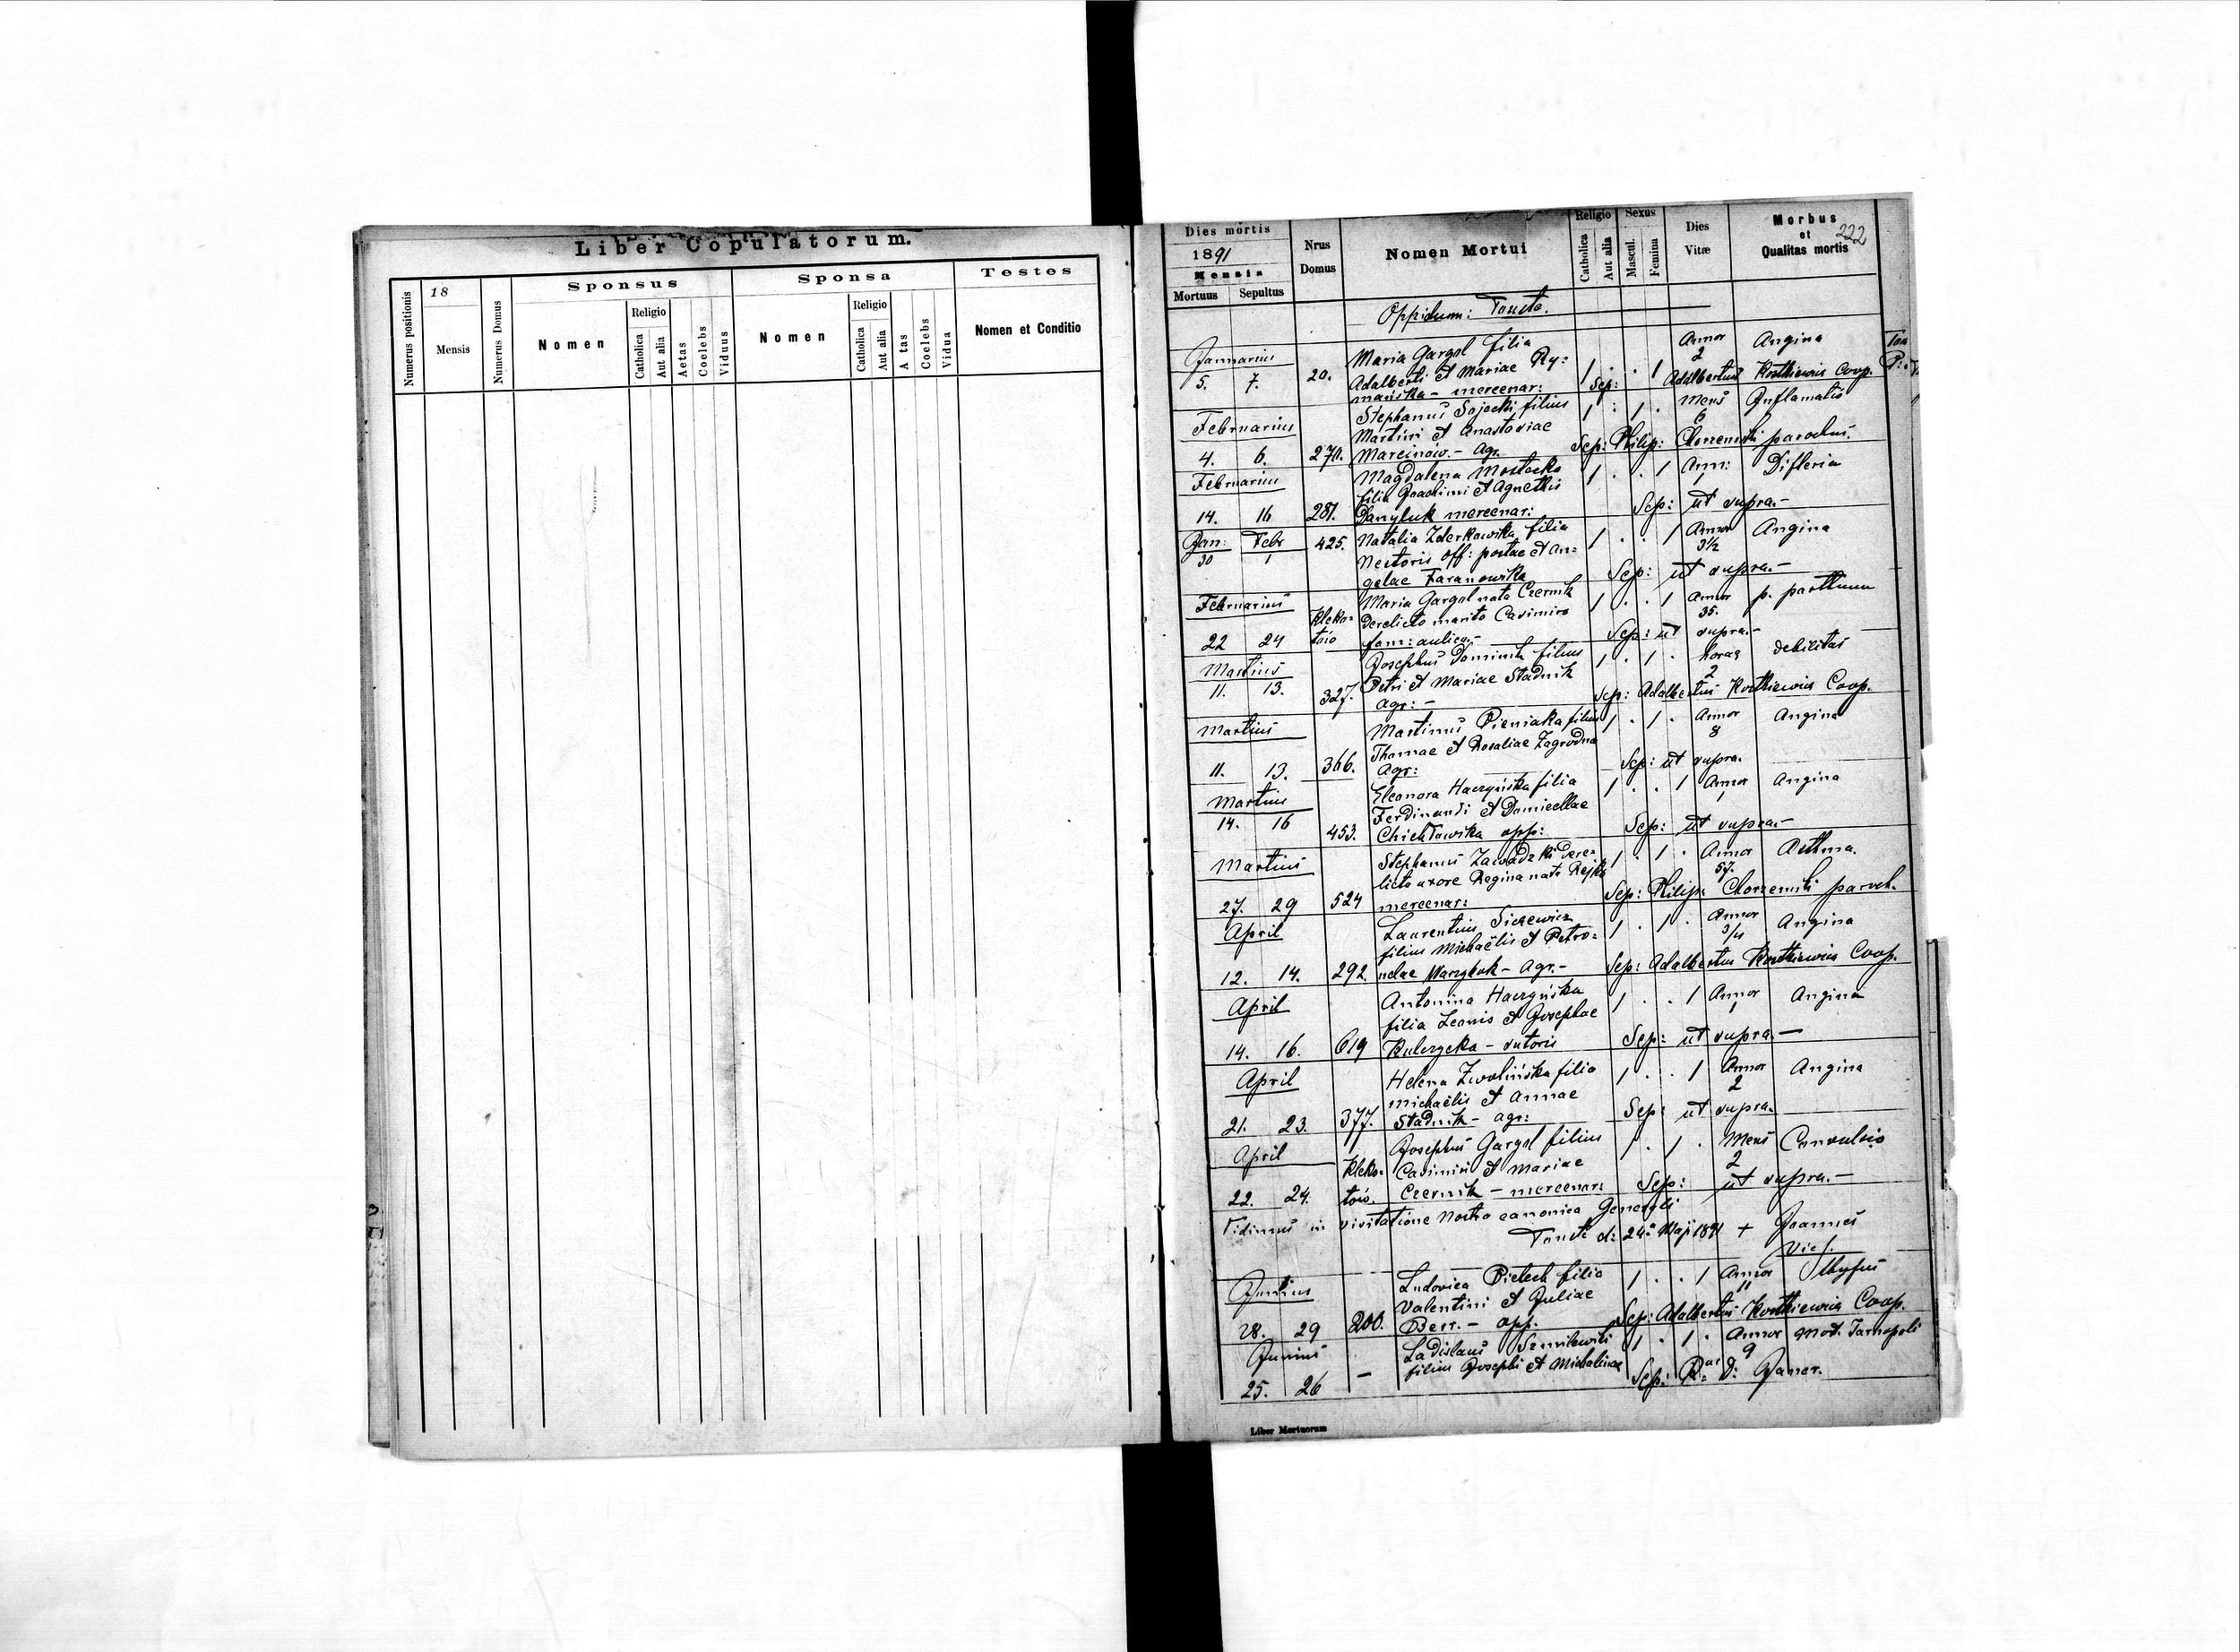 Liber Copulatorum.
Numerus positionis
18
Mensis
Numerus Domus
Sponsus
Nomen
Religio
Catholica
Aut alia
Aetas
Coelebs
Viduus
Sponsa
Nomen
Religio
Catholica
Aut alia
A tas
Coelebs
Vidua
Testes
Nomen et Conditio
Dies mortis
1891
Mensis
Mortuus Sepultus
Nrus
Domus
Nomen Mortui
Religio
Catholica
Aut alia
Sexus
Mascul.
Femina
Dies
Vitæ
Morbus
et
Qualitas mortis
222
Oppidum: Touste.
Januarius
5. 7. 20.
Maria Gargol filia
Adalberti et Mariae Ry=
mańska - mercenar:
1 . . 1 Annor 2 Angina
Sep: Adalbertus Korthiewicz Coop.
Februarius
4. 6. 270.
Stephanus Sojecki filius
Martini et Anastasiae
Marcinów. - Agr.
1 . 1 . Mens 6 Inflamatio
Sep: Philip: Chorzemski parochus.
Februarius
14. 16 281.
Magdalena Mostecka
filia Joachimi et Agnethis
Danyluk mercenar:
1 . . 1 Ann: 1 Difteria
Sep: ut supra.-
Jan: Febr
30 1 425.
Natalia Zderkowska filia
Nestoris off: postae et An=
gelae Taranowska
1 . . 1 Annor 3½ Angina
Sep: ut supra.-
Februarius
22 24 Kleko=
toió
Maria Gargol nata Czernik
derelicto marito Casimiro
fam: aulica.-
1 . . 1 Annor 35. p. parthum
Sep: ut supra.-
Martius
11. 13. 327.
Josephus Dominik filius
Petri et Mariae Stadnik
agr: -
1 . 1 . horas 2 debilitas
Sep: Adalbertus Korthiewicz Coop.
Martius
11. 13. 366.
Martinus Pieniaka filius
Thomae et Rosaliae Zagrodna
Agr:
1 . 1 . Annor 8 Angina
Sep: ut supra.
Martius
14. 16 453.
Eleonora Haczyńska filia
Ferdinandi et Domicellae
opp:
1 . . 1 Annor 1 Angina
Sep: ut supra.-
Martius
27. 29 524
Stephanus Zawadzki dere=
licta uxore Regina nata Rejka
mercenar:
1 . 1 . Annor 57. Asthma.
Sep: Philip: Chorzemski paroch.
April
12. 14. 292
Laurentius Sickewicz
filius Michaëlis et Petro=
nelae - Agr.-
1 . 1 . Annor 3/4 Angina
Sep: Adalbertus Korthiewicz Coop.
April
14. 16. 619
Antonina Haczyńska
filia Leonis et Josephae
Kulczycka - sutoris
1 . . 1 Annor 1 Angina
Sep: ut supra -
April
21. 23. 377.
Helena Zwolińska filia
Michaëlis et Annae
Stadnik - agr:
1 . . 1 Annor 2 Angina
Sep: ut supra.
April
22. 24. Kleko=
toió.
Josephus Gargol filius
Casimiri et Mariae
Czernik - mercenar:
1 . 1 . Mens 2 Convulsio
Sep: ut supra.-
Vidimus in visitatione Nostra canonica Generali
Touste d: 24a Maji 1891 + Joannes
Junius
28. 29 200.
Ludovica Pielech filia
Valentini et Juliae
- opp.
1 . . 1 Annor 11 thyfus
Sep: Adalbertus Korthiewicz Coop.
Junius
25. 26 -
Ladislaus Szmilewski
filius Josephi et Michalinae
1 . 1 . Annor 9 mort. Tarnopoli
Sep:
Liber Mortuorum